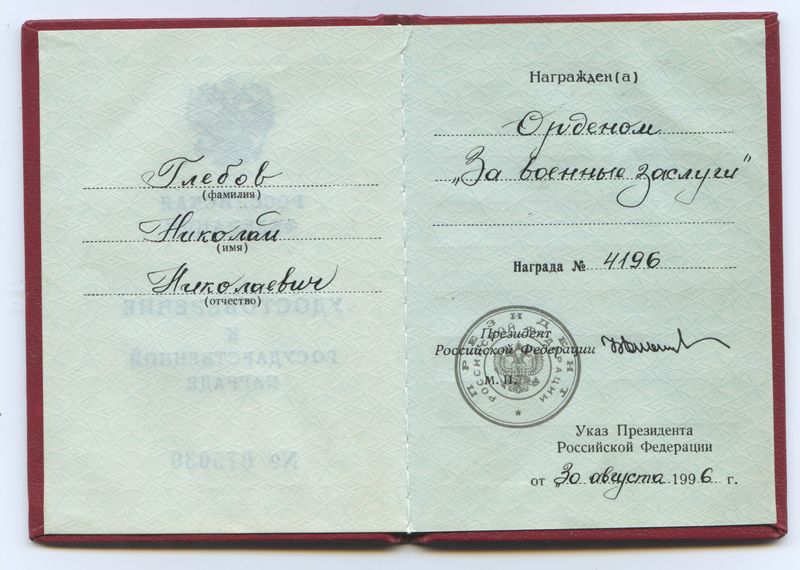 Глебов
(фамилия)
Николай
(имя)
Николаевич
(отчество)
Награжден(а)
Орденом
„За военные заслуги"
Награда № 4196
Президент
Российской Федерации
М. П.
ПРЕЗИДЕНТ
РОССИЙСКОЙ ФЕДЕРАЦИИ
Указ Президента
Российской Федерации
от „30 августа 1996 г.
РОССИЙСКАЯ
УДОСТОВЕРЕНИЕ
К
ГОСУДАРСТВЕННОЙ
НАГРАДЕ